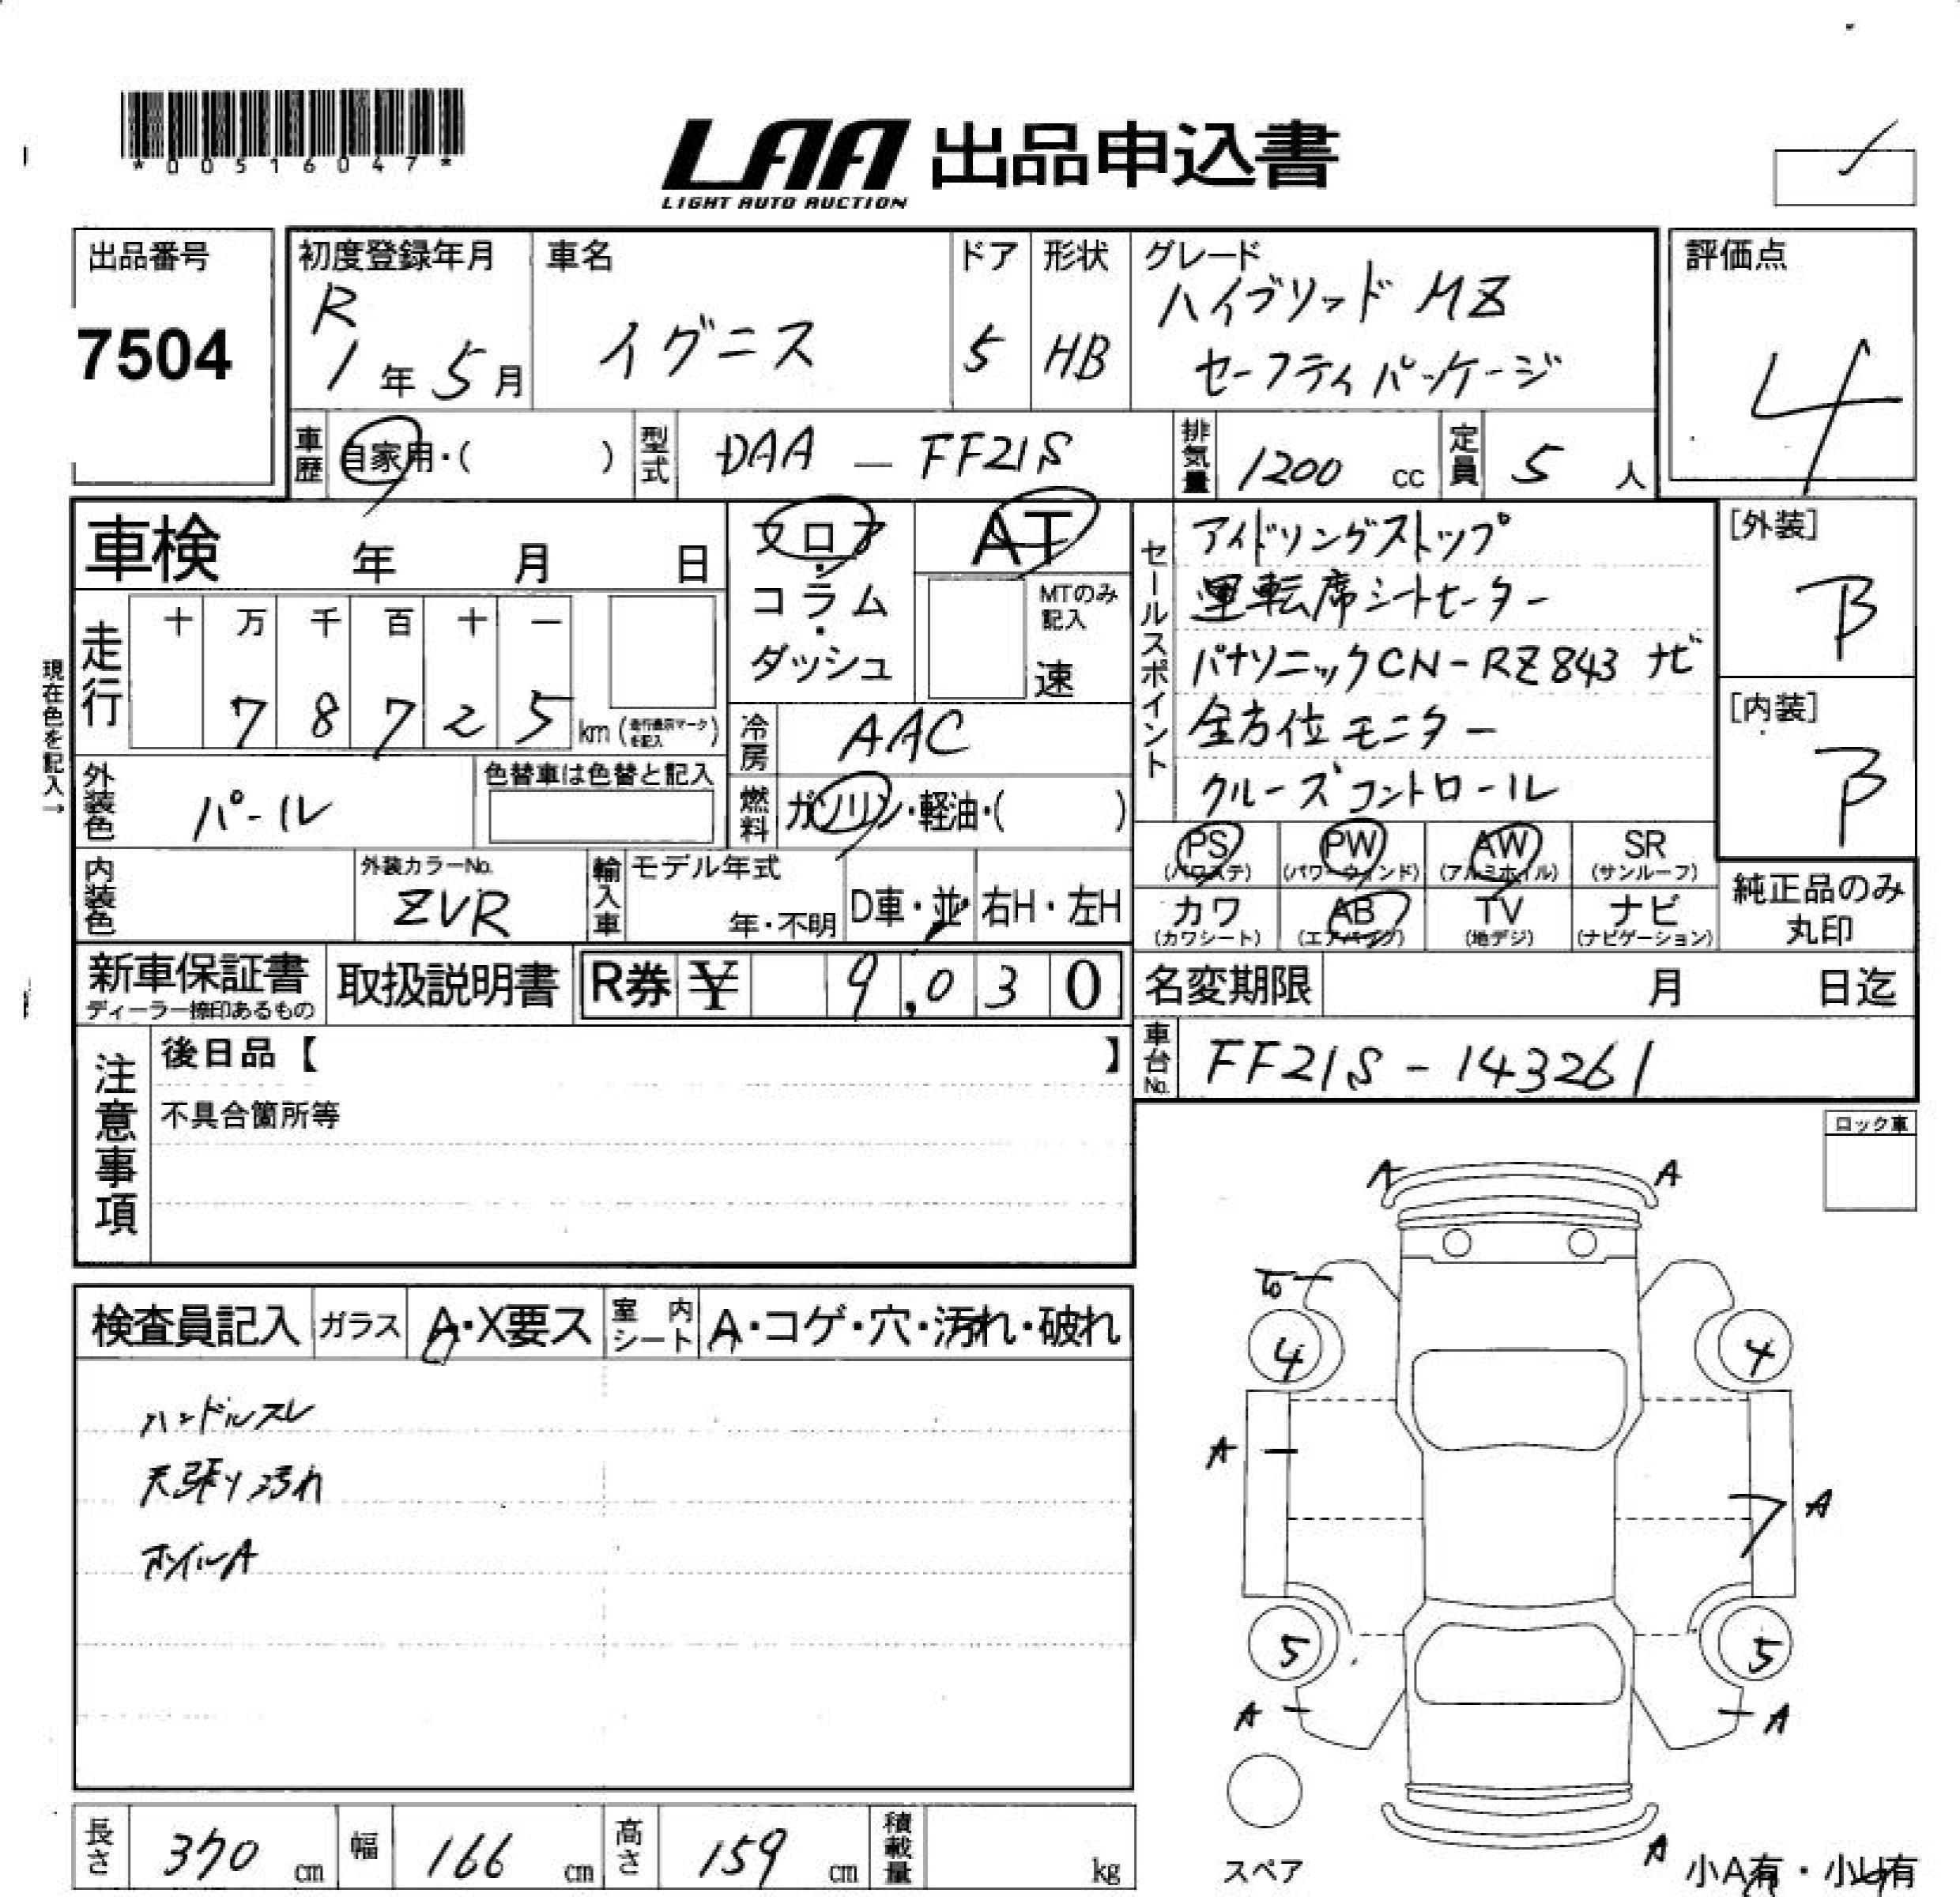 *00516047*
LAA 出品申込書
LIGHT AUTO AUCTION
出品番号
7504
初度登録年月
R
1年5月
車名
イグニス
ドア
5
形状
HB
グレード
ハイブリッド MZ
セーフティパッケージ
評価点
4
車歴 自家用・( )
型式 DAA - FF21S
排気量 1200 cc
定員 5 人
車検 年 月 日
フロア・コラム・ダッシュ
AT
MTのみ記入
速
セールスポイント
アイドリングストップ
運転席シートヒーター
パナソニックCN-RZ843 ナビ
全方位モニター
クルーズコントロール
[外装]
B
[内装]
B
現在色を記入→
走行
十 万 千 百 十 一
7 8 7 2 5 km (走行表示マークを記入)
冷房 AAC
外装色 パール
色替車は色替と記入
燃料 ガソリン・軽油・( )
内装色
外装カラーNo.
ZVR
輸入車
モデル年式
年・不明
D車・並 右H・左H
PS (パワステ)
PW (パワーウィンド)
AW (アルミホイル)
SR (サンルーフ)
カワ (カワシート)
AB (エアバッグ)
TV (地デジ)
ナビ (ナビゲーション)
純正品のみ丸印
新車保証書
ディーラー捺印あるもの
取扱説明書
R券 ¥ 9,030
名変期限 月 日迄
車台No. FF21S-143261
注意事項
後日品【 】
不具合箇所等
ロック車
検査員記入
ガラス A・X要ス
室内シート A・コゲ・穴・汚れ・破れ
ハンドルスレ
天張り汚れ
ホイルA
A A
4 4
A
A
5 5
A A
スペア
A
小A有・小U有
長さ 370 cm
幅 166 cm
高さ 159 cm
積載量 kg